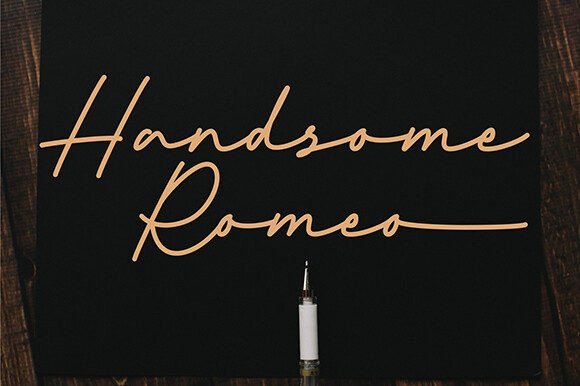 Handsome
Romeo